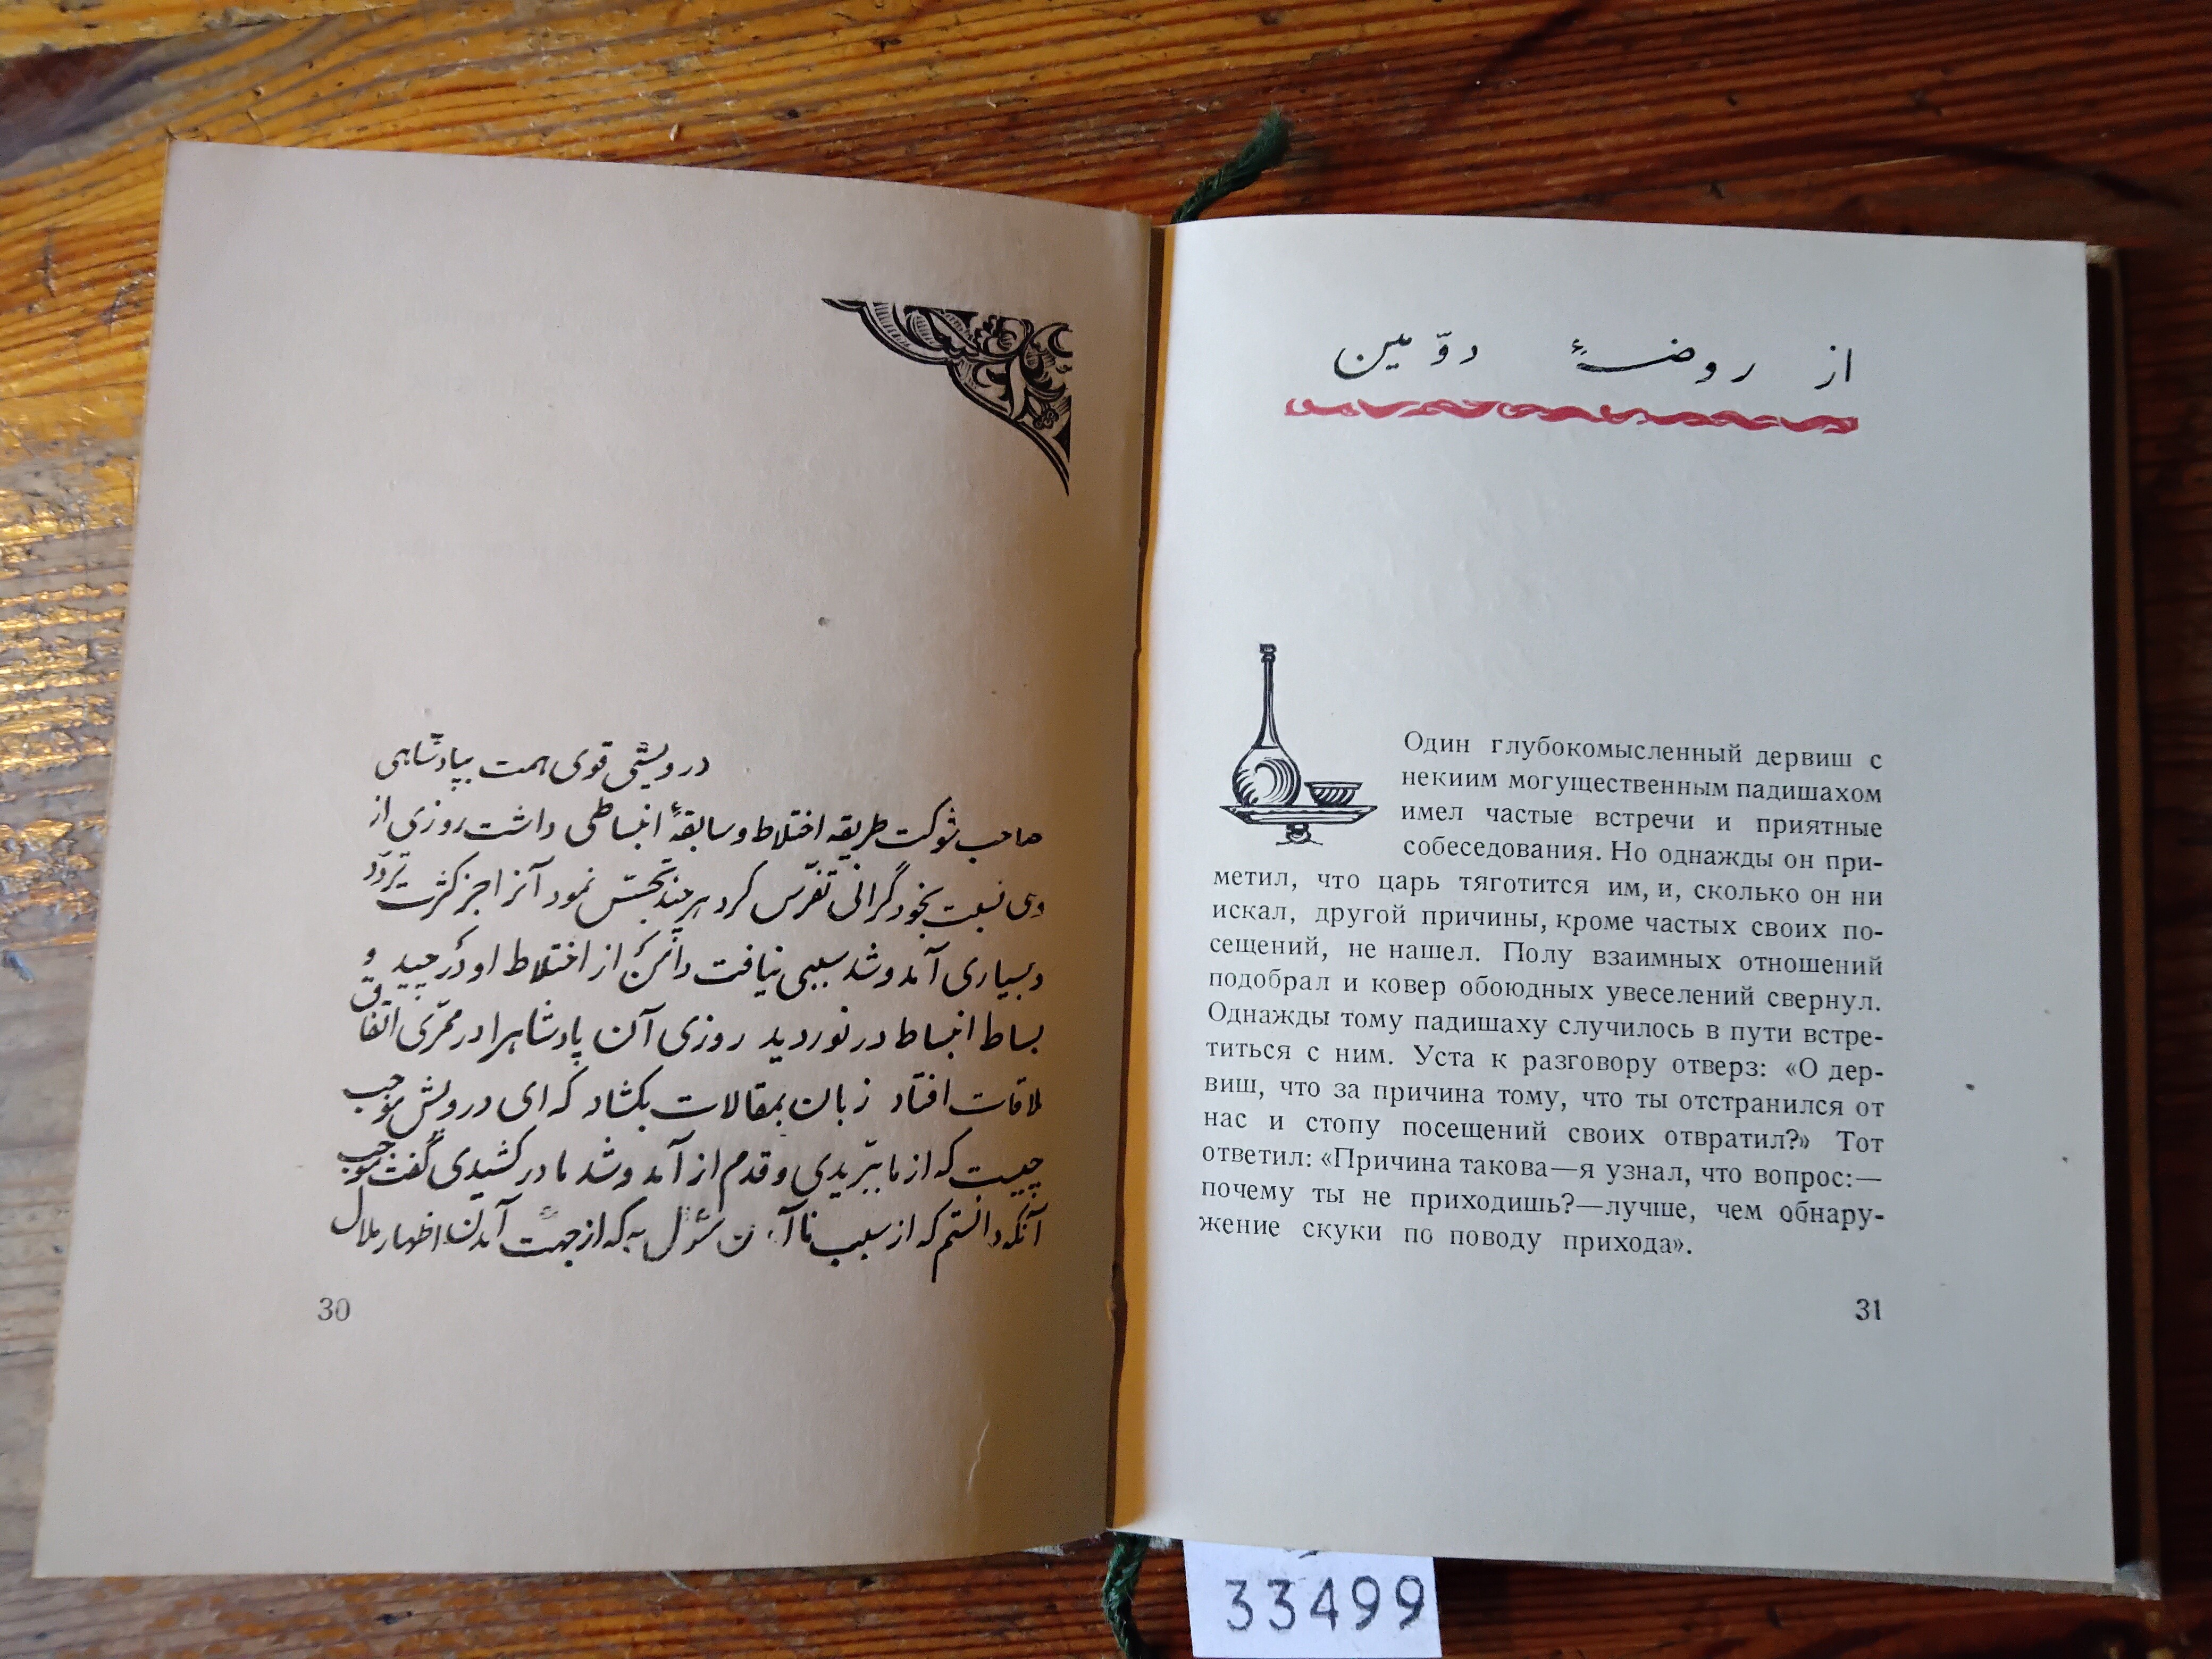 درویشی قوی همت بپادشاهی
صاحب شوکت طریقه اختلاط و سابقهٔ انبساطی داشت روزی از
وی نسبت بخود گرانی تفرّس کرد هر چند تجسّس نمود آنرا جز کثرت تردّد
و بسیاری آمد و شد سببی نیافت دامن از اختلاط او در چید و
بساط انبساط در نوردید روزی آن پادشاهرا در ممرّی اتّفاق
ملاقات افتاد زبان بمقالات بکشاد که ای درویش موجب
چیست که از ما ببریدی و قدم از آمد و شد ما در کشیدی گفت موجب
آنکه دانستم که از سبب نا آمدن سؤال به که از جهت آمدن اظهار ملال
30
از روضهٔ دوّمین
Один глубокомысленный дервиш с
некиим могущественным падишахом
имел частые встречи и приятные
собеседования. Но однажды он при-
метил, что царь тяготится им, и, сколько он ни
искал, другой причины, кроме частых своих по-
сещений, не нашел. Полу взаимных отношений
подобрал и ковер обоюдных увеселений свернул.
Однажды тому падишаху случилось в пути встре-
титься с ним. Уста к разговору отверз: «О дер-
виш, что за причина тому, что ты отстранился от
нас и стопу посещений своих отвратил?» Тот
ответил: «Причина такова—я узнал, что вопрос:—
почему ты не приходишь?—лучше, чем обнару-
жение скуки по поводу прихода».
31
33499